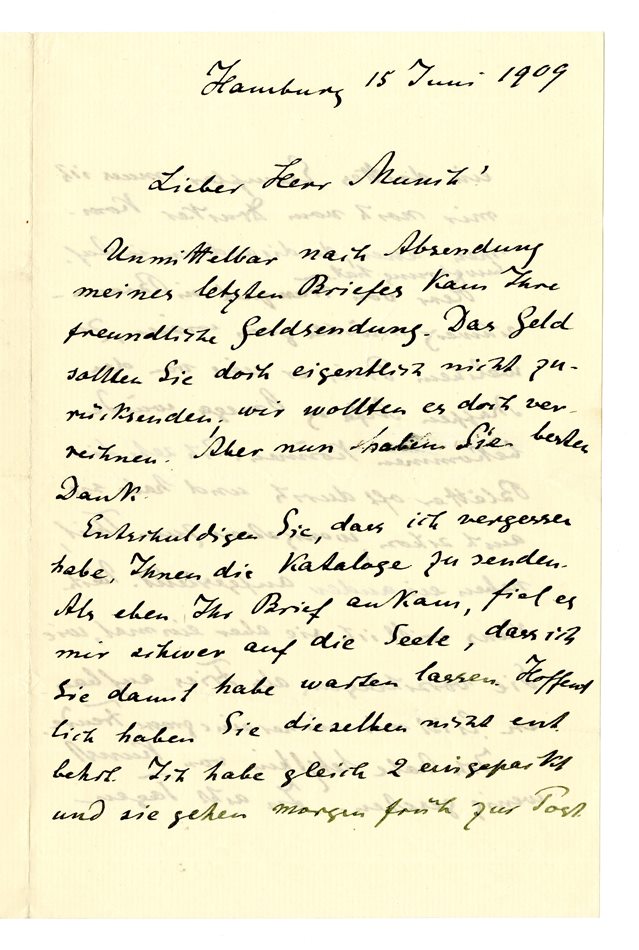 Hamburg 15 Juni 1909
Lieber Herr Munch!
Unmittelbar nach Absendung
meines letzten Briefes kam Ihre
freundliche Geldsendung. Das Geld
sollten Sie doch eigentlich nicht zu-
rücksenden, wir wollten es doch ver-
rechnen. Aber nun haben Sie besten
Dank.
Entschuldigen Sie, dass ich vergessen
habe, Ihnen die Kataloge zu senden.
Als eben Ihr Brief ankam, fiel es
mir schwer auf die Seele, dass ich
Sie damit habe warten lassen. Hoffent
lich haben Sie dieselben nicht ent.
behrt. Ich habe gleich 2 eingepackt
und sie gehen morgen früh zur Post.